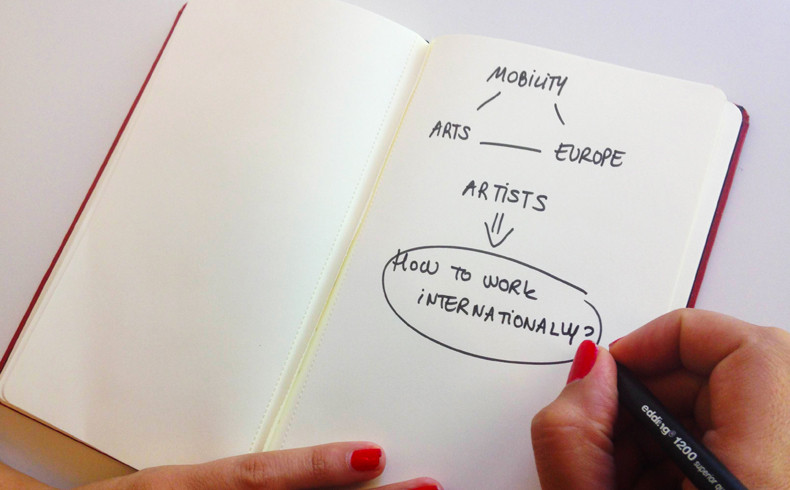 MOBILITY
ARTS EUROPE
ARTISTS
HOW TO WORK
INTERNATIONALLY?
edding 1200